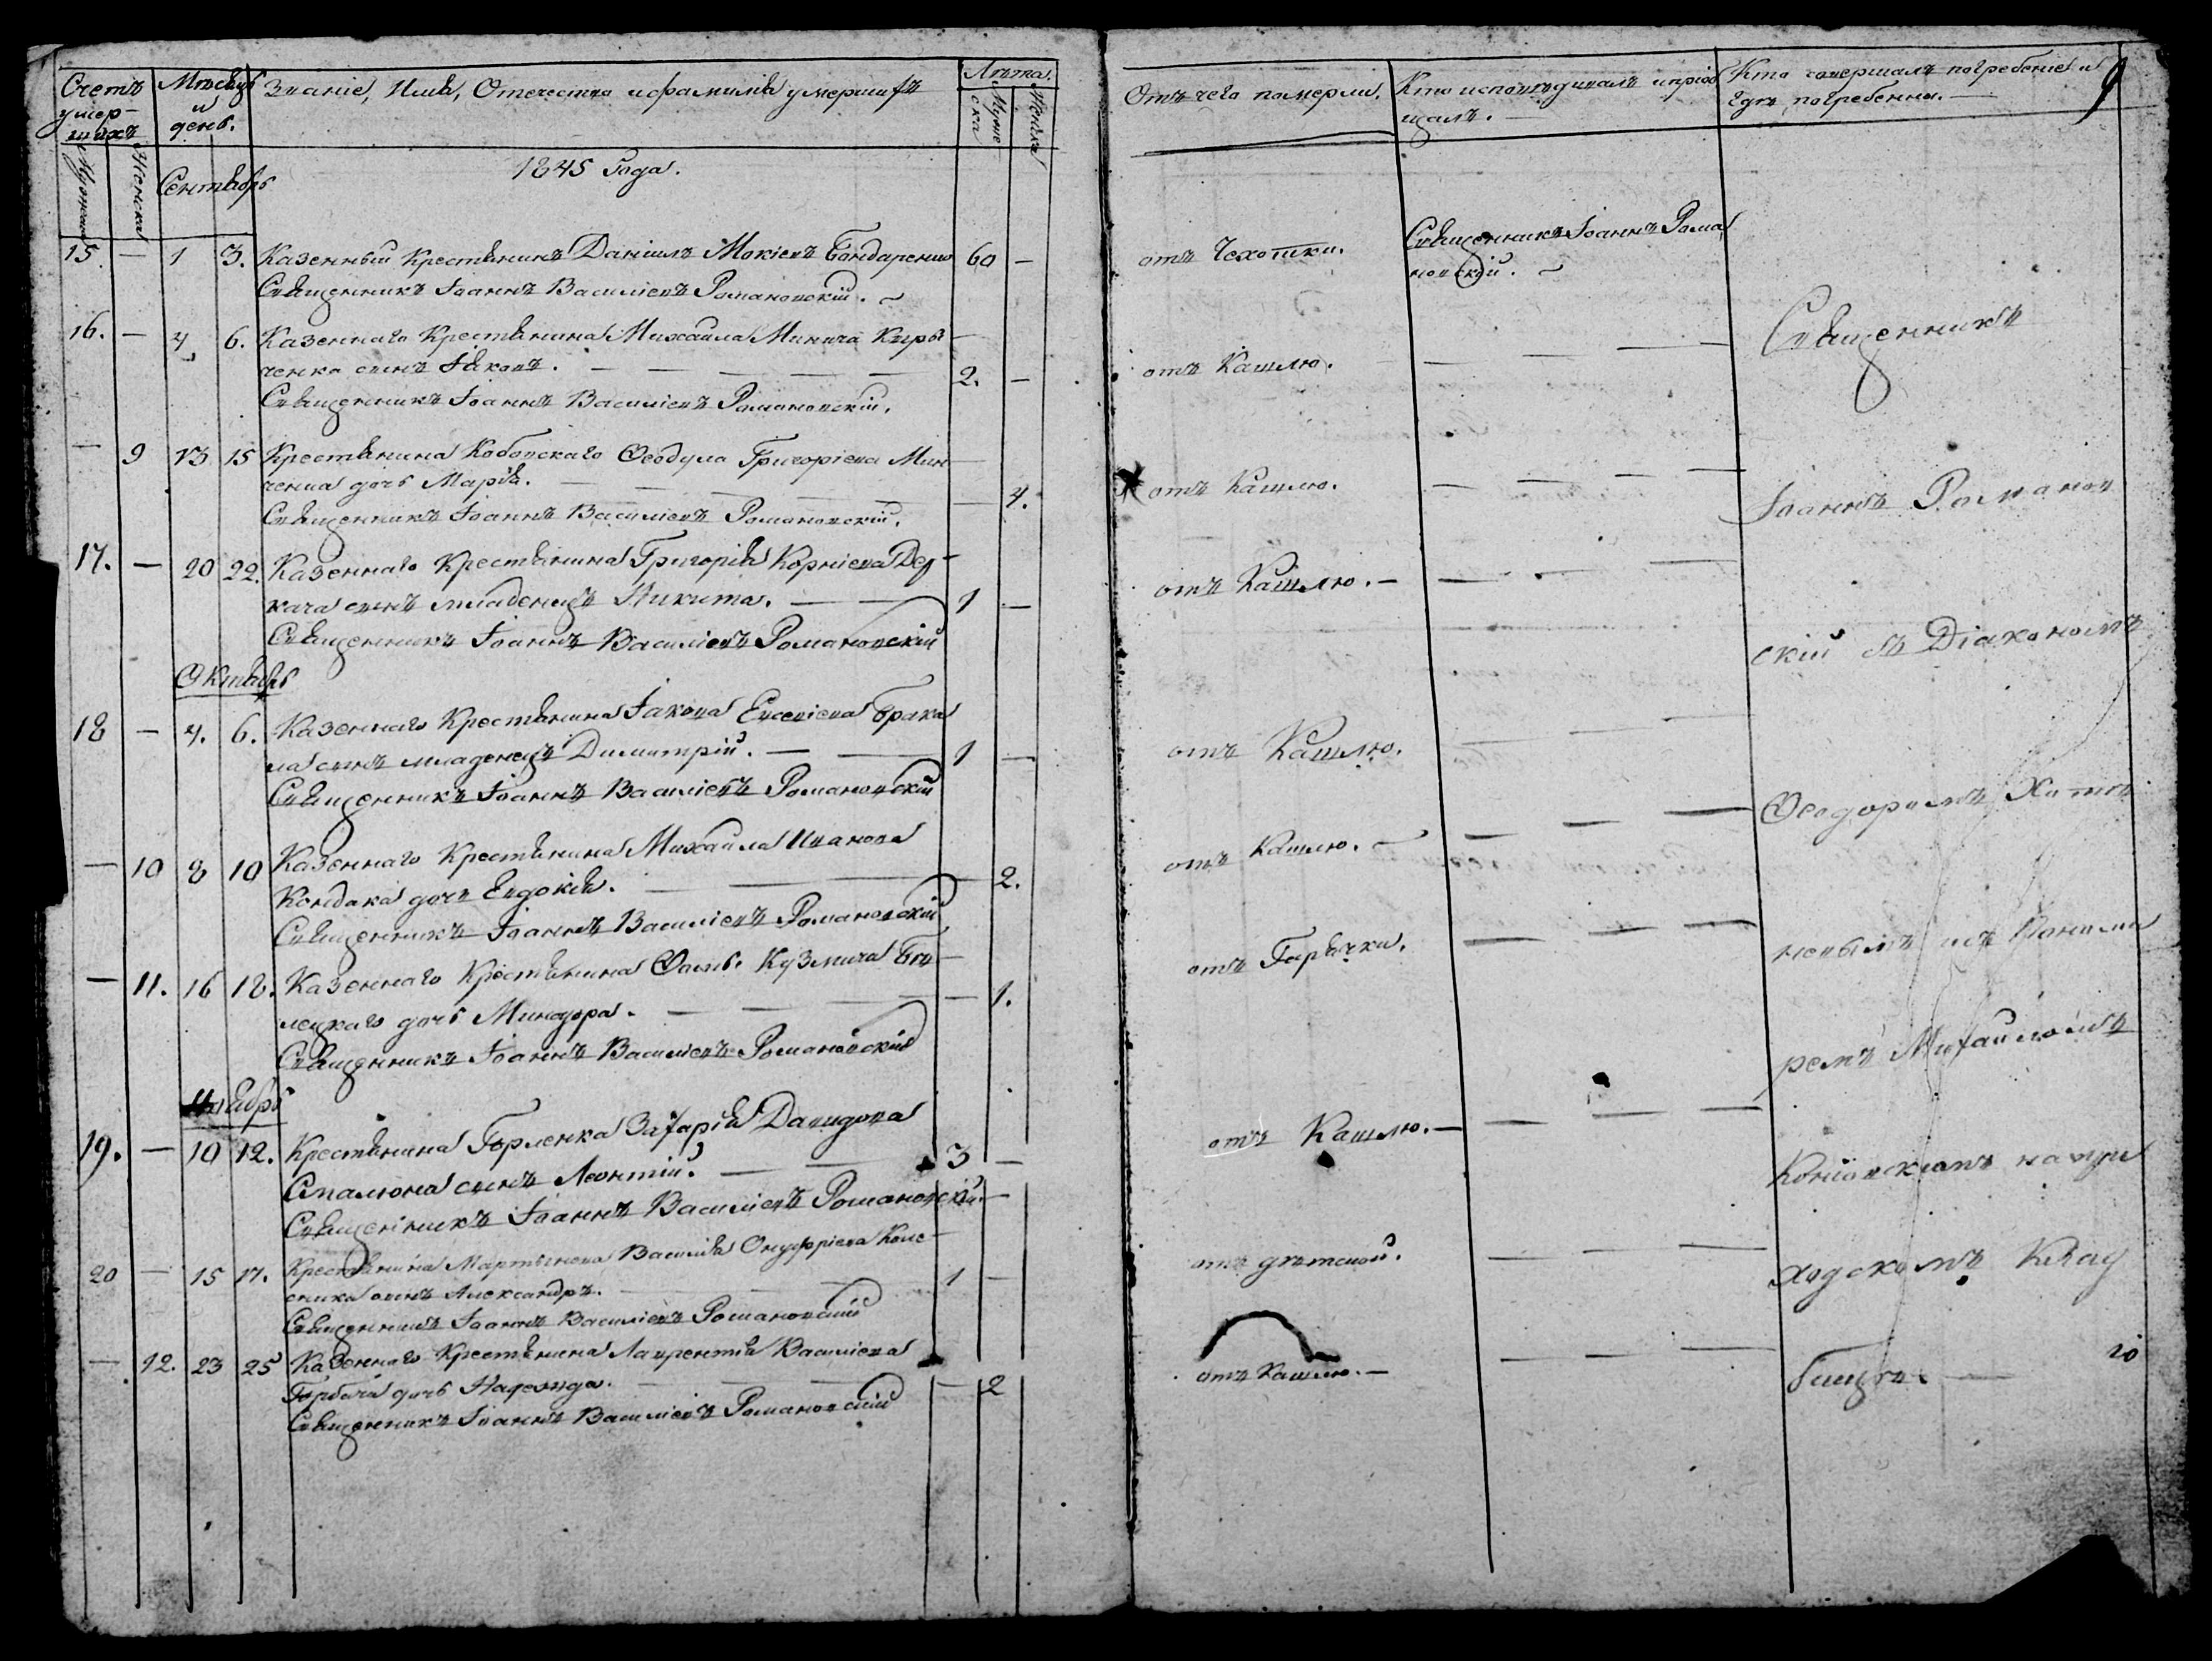 Счетъ умер-
шихъ
Мѣсяцъ
и
день.
Званіе, Имя, Отечество и фамилія умершихъ
Лѣта.
Мужеска
Женска
Мужеска
Женска
Сентябрь
1845 Года.
15. — 1 3. Казенный Крестянинъ Даніилъ Мокіевъ Бондаренко 60 —
Священникъ Іоаннъ Василіевъ Романовскій.
16. — 4 6. Казеннаго Крестянина Михаила Минича Киры-
ченка сынъ Іяковъ. — — — — — 2. —
Священникъ Іоаннъ Василіевъ Романовскій.
— 9 13 15 Крестянина Кобовскаго Ѳеодула Григоріева Мин-
ченка дочь Марія. — — — — 4.
Священникъ Іоаннъ Василіевъ Романовскій.
17. — 20 22. Казеннаго Крестянина Григорія Корніева Дер-
кача сынъ младенецъ Никита. — — 1 —
Священникъ Іоаннъ Василіевъ Романовскій
Октябрь
18 — 4. 6. Казеннаго Крестянина Іакова Евсевіева
сынъ младенецъ Димитрій. — — 1 —
Священникъ Іоаннъ Василіевъ Романовскій
— 10 8 10 Казеннаго Крестянина Михаила Иванова
Кондака дочь Евдокія. — — — 2.
Священникъ Іоаннъ Василіевъ Романовскій
— 11. 16 18. Казеннаго Крестянина Ѳомы Кузмича Би-
лецкаго дочь Минодора. — — — 1.
Священникъ Іоаннъ Василіевъ Романовскій
Ноябрь
19. — 10 12. Крестянина Горленка Захарія Давидова
сынъ Леонтій. — — 3 —
Священникъ Іоаннъ Василіевъ Романовскій
20 — 15 17. Крестянина Мартынова Василія Онуфріева Коле-
сника сынъ Александръ. — — 1 —
Священникъ Іоаннъ Василіевъ Романовскій
— 12. 23 25 Казеннаго Крестянина Лаврентія Василіева
Горбача дочь — — — 2
Священникъ Іоаннъ Василіевъ Романовскій
Отъ чего померли.
Кто исповѣдивалъ и пріоб
щалъ. —
Кто совершалъ погребеніе и
гдѣ погребенны. —
9
отъ Чехотки.
Священникъ Іоаннъ Рома
новскій.
отъ Кашлю. — — —
отъ Кашлю. — — —
отъ Кашлю. — — — —
отъ Кашлю. — — —
отъ Кашлю. — — — —
отъ Горячки. — — —
отъ Кашлю. — — — —
отъ дѣтской. — — —
отъ Кашлю. — — — —
Священникъ
Іоаннъ Романов
скій съ Діакономъ
Ѳеодоромъ
и съ Понома
ремъ Михаиломъ
на при
ходскомъ Клад
бищѣ. —
10